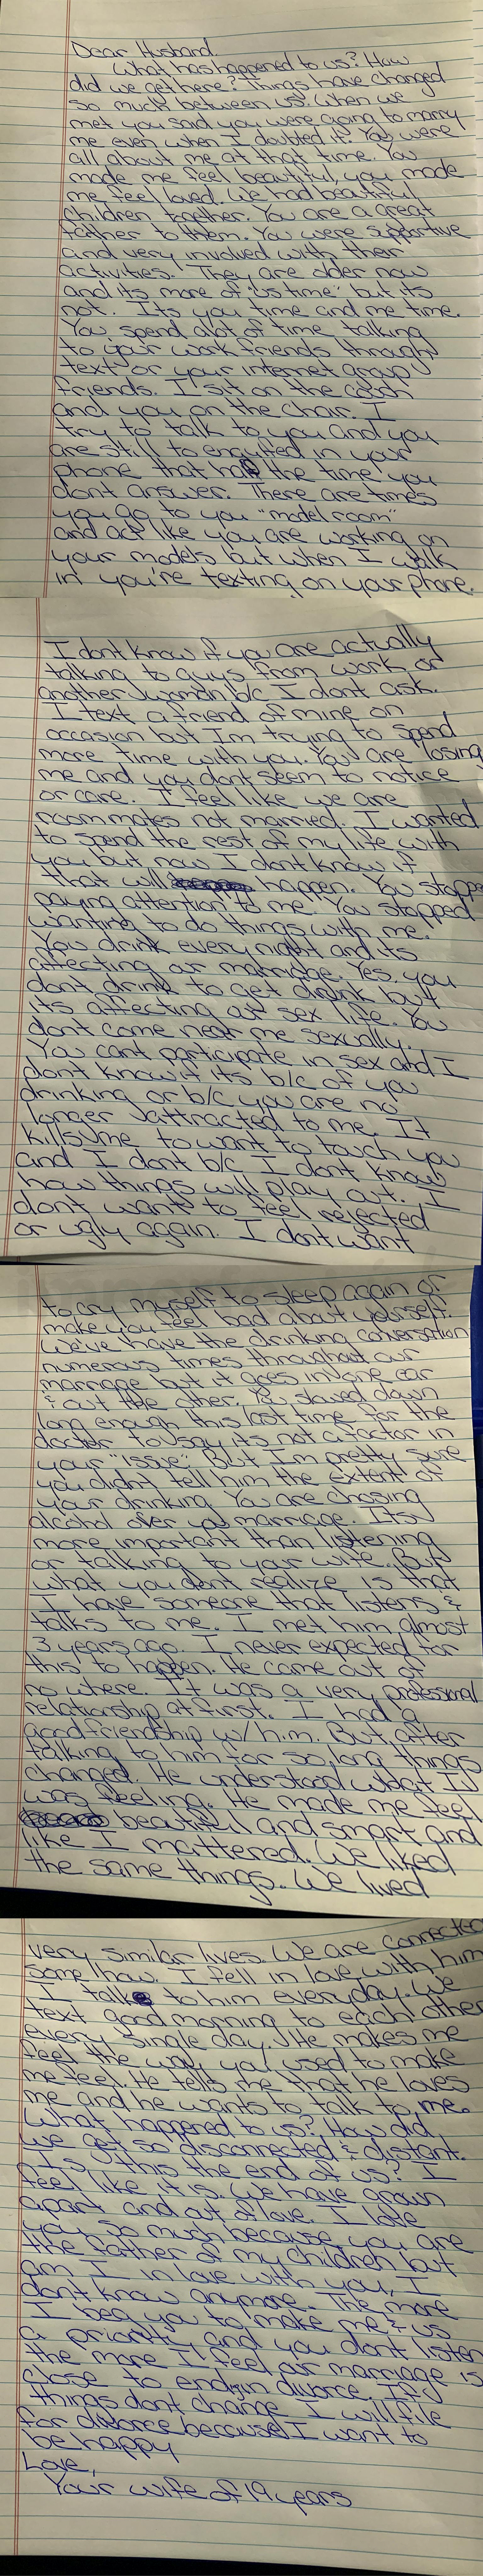 Dear Husband
What has happened to us? How
did we get here? Things have changed
so much between us. When we
met you said you were going to marry
me even when I doubted it. You were
all about me at that time. You
made me feel beautiful, you made
me feel loved. We had beautiful
children together. You are a great
father to them. You were supportive
and very involved with their
activities. They are older now
and its more of "us time" but its
not. Its you time and me time.
You spend alot of time talking
to your work friends through
text or your internet group
friends. I sit on the couch
and you on the chair. I
try to talk to you and you
are still to engulfed in your
phone that half the time you
dont answer. There are times
you go to you "model room"
and act like you are working on
your models but when I walk
in you're texting on your phone.
I dont know if you are actually
talking to guys from work or
another woman b/c I dont ask.
I text a friend of mine on
occasion but Im trying to spend
more time with you. You are losing
me and you dont seem to notice
or care. I feel like we are
roommates not married. I wanted
to spend the rest of my life with
you but now I dont know if
that will happen. You stoppe
paying attention to me. You stopped
wanting to do things with me.
You drink every night and its
affecting our marriage. Yes, you
dont drink to get drunk but
its affecting our sex life. You
dont come near me sexually.
You cant participate in sex and I
dont know if its b/c of you
drinking or b/c you are no
longer attracted to me. It
kills me to want to touch you
and I dont b/c I dont know
how things will play out. I
dont want to feel rejected
or ugly again. I dont want
to cry myself to sleep again or
make you feel bad about yourself.
We've have the drinking conversation
numerous times throughout our
marriage but it goes in one ear
& out the other. You slowed down
long enough this last time for the
doctor to say its not a factor in
your "issue". But I'm pretty sure
you didn't tell him the extent of
your drinking. You are chosing
alcohol over your marriage. Its
more important than listening
or talking to your wife. But
what you dont realize is that
I have someone that listens &
talks to me. I met him almost
3 years ago. I never expected for
this to happen. He came out of
no where. It was a very professional
relationship at first. I had a
good friendship w/ him. But after
talking to him for so long things
changed. He understood what I
was feeling. He made me feel
beautiful and smart and
like I mattered. We liked
the same things. We lived
very similar lives. We are connected
some how. I fell in love with him
I talk to him everyday. We
text good morning to each other
every single day. He makes me
feel the way you used to make
me feel. He tells me that he loves
me and he wants to talk to me.
What happened to us? How did
we get so disconnected & distant.
Is this the end of us? I
feel like it is. We have grown
apart and out of love. I love
you so much because you are
the father of my children but
am I in love with you, I
dont know anymore. The more
I beg you to make me & us
a priority and you dont listen
the more I feel our marriage is
close to ending in divorce. If
things dont change I will file
for divorce because I want to
be happy
Love,
Your wife of 19 years